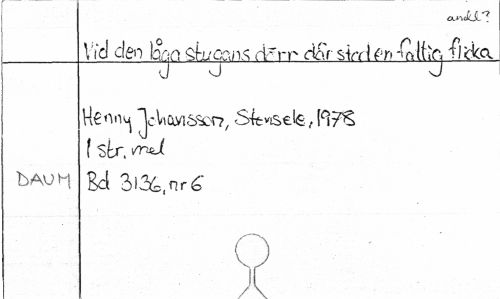 andl?
Vid den låga stugans dörr där stod en fattig flicka
Henny Johansson, Stensele, 1978
1 str. mel
DAUM Bd 3136, nr 6